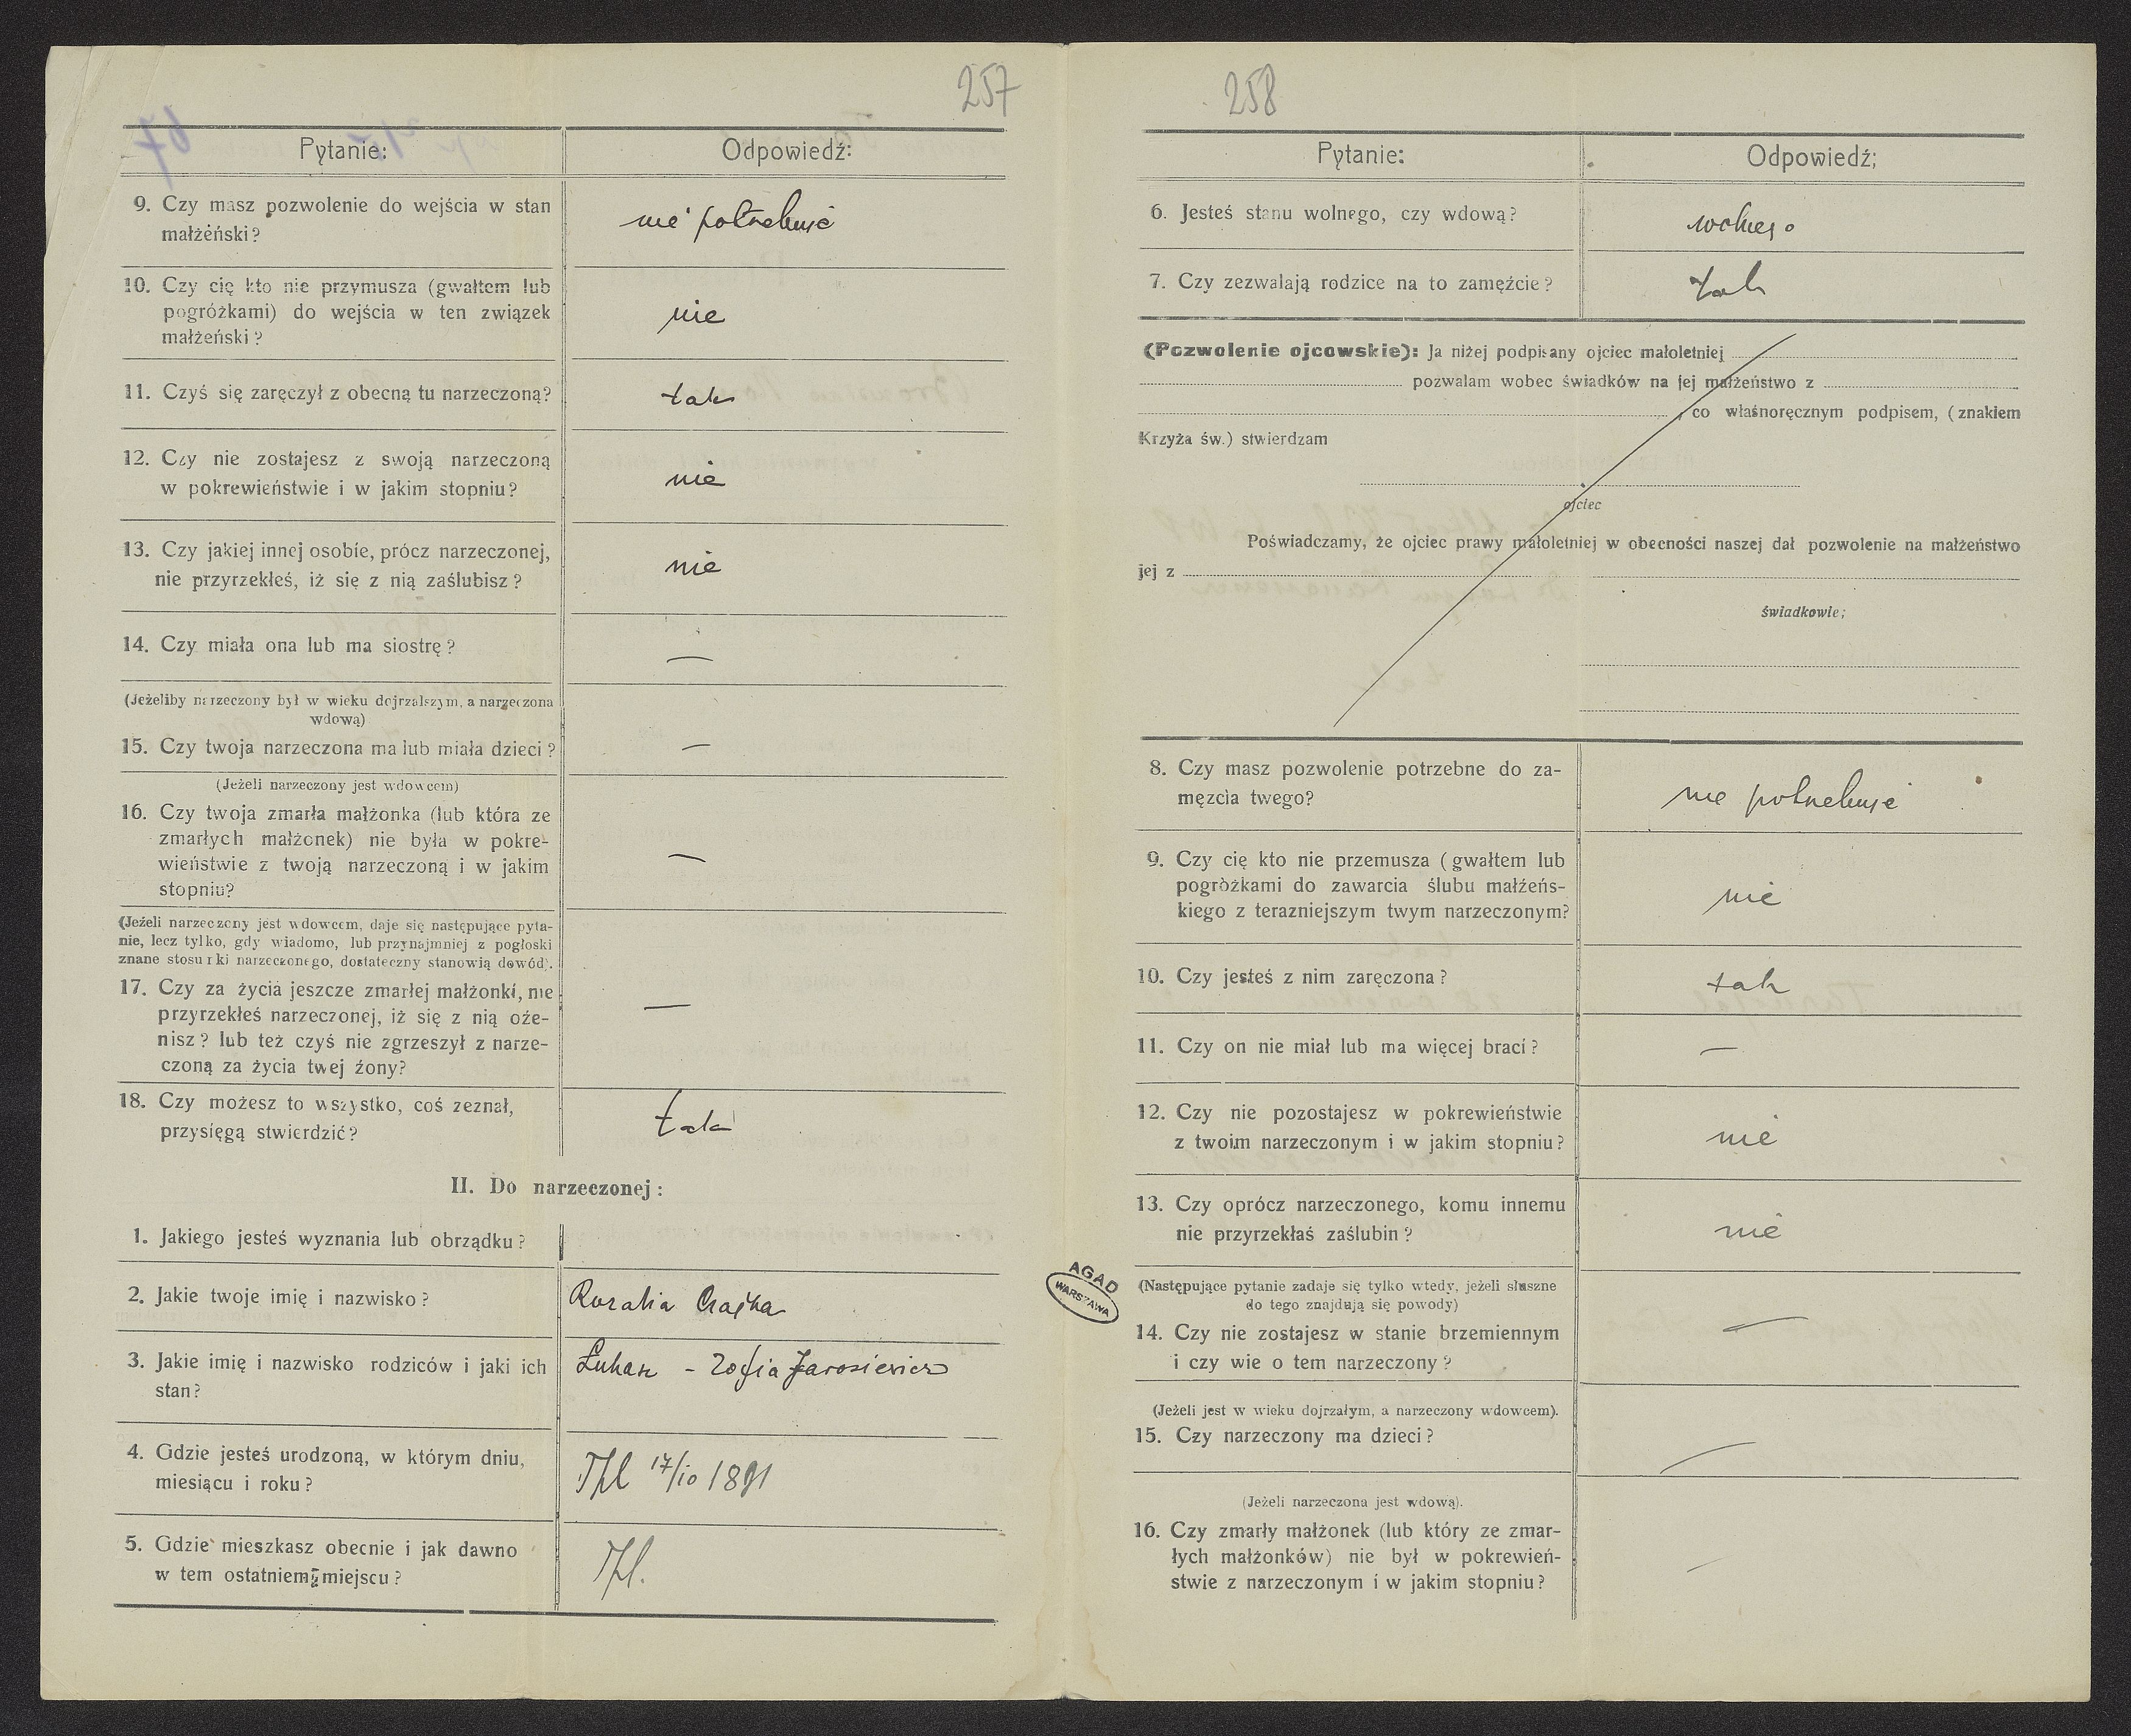 257
Pytanie:
Odpowiedź:
9. Czy masz pozwolenie do wejścia w stan
małżeński?
nie potrzebuje
10. Czy cię kto nie przymusza (gwałtem lub
pogróżkami) do wejścia w ten związek
małżeński?
nie
11. Czyś się zaręczył z obecną tu narzeczoną?
tak
12. Czy nie zostajesz z swoją narzeczoną
w pokrewieństwie i w jakim stopniu?
nie
13. Czy jakiej innej osobie, prócz narzeczonej,
nie przyrzekłeś, iż się z nią zaślubisz?
nie
14. Czy miała ona lub ma siostrę?
—
(Jeżeliby narzeczony był w wieku dojrzalszym, a narzeczona
wdową)
15. Czy twoja narzeczona ma lub miała dzieci?
—
(Jeżeli narzeczony jest wdowcem)
16. Czy twoja zmarła małżonka (lub która ze
zmarłych małżonek) nie była w pokre-
wieństwie z twoją narzeczoną i w jakim
stopniu?
—
(Jeżeli narzeczony jest wdowcem, daje się następujące pyta-
nie, lecz tylko, gdy wiadomo, lub przynajmniej z pogłoski
znane stosunki narzeczonego, dostateczny stanowią dowód).
17. Czy za życia jeszcze zmarłej małżonki, nie
przyrzekłeś narzeczonej, iż się z nią oże-
nisz? lub też czyś nie zgrzeszył z narze-
czoną za życia twej żony?
—
18. Czy możesz to wszystko, coś zeznał,
przysięgą stwierdzić?
tak
II. Do narzeczonej:
1. Jakiego jesteś wyznania lub obrządku?
2. Jakie twoje imię i nazwisko?
Rozalia Czajka
3. Jakie imię i nazwisko rodziców i jaki ich
stan?
Łukasz - Zofia Jarosiewicz
4. Gdzie jesteś urodzoną, w którym dniu,
miesiącu i roku?
Tpl 17/10 1891
5. Gdzie mieszkasz obecnie i jak dawno
w tem ostatniem miejscu?
Tpl.
258
Pytanie:
Odpowiedź;
6. Jesteś stanu wolnego, czy wdową?
wolnego
7. Czy zezwalają rodzice na to zamęźcie?
tak
(Pozwolenie ojcowskie): Ja niżej podpisany ojciec małoletniej
pozwalam wobec świadków na jej małżeństwo z
, co własnoręcznym podpisem, (znakiem
Krzyża św.) stwierdzam
ojciec
Poświadczamy, że ojciec prawy małoletniej w obecności naszej dał pozwolenie na małżeństwo
jej z
świadkowie;
8. Czy masz pozwolenie potrzebne do za-
męzcia twego?
nie potrzebuje
9. Czy cię kto nie przemusza (gwałtem lub
pogròżkami do zawarcia ślubu małźeńs-
kiego z terazniejszym twym narzeczonym?
nie
10. Czy jesteś z nim zaręczona?
tak
11. Czy on nie miał lub ma więcej braci?
—
12. Czy nie pozostajesz w pokrewieństwie
z twoim narzeczonym i w jakim stopniu?
nie
13. Czy oprócz narzeczonego, komu innemu
nie przyrzekłaś zaślubin?
nie
(Następujące pytanie zadaje się tylko wtedy, jeżeli słuszne
do tego znajdują się powody)
14. Czy nie zostajesz w stanie brzemiennym
i czy wie o tem narzeczony?
—
(Jeżeli jest w wieku dojrzałym, a narzeczony wdowcem).
15. Czy narzeczony ma dzieci?
—
(Jeżeli narzeczona jest wdową).
16. Czy zmarły małżonek (lub który ze zmar-
łych małżonków) nie był w pokrewień-
stwie z narzeczonym i w jakim stopniu?
—
AGAD
WARSZAWA